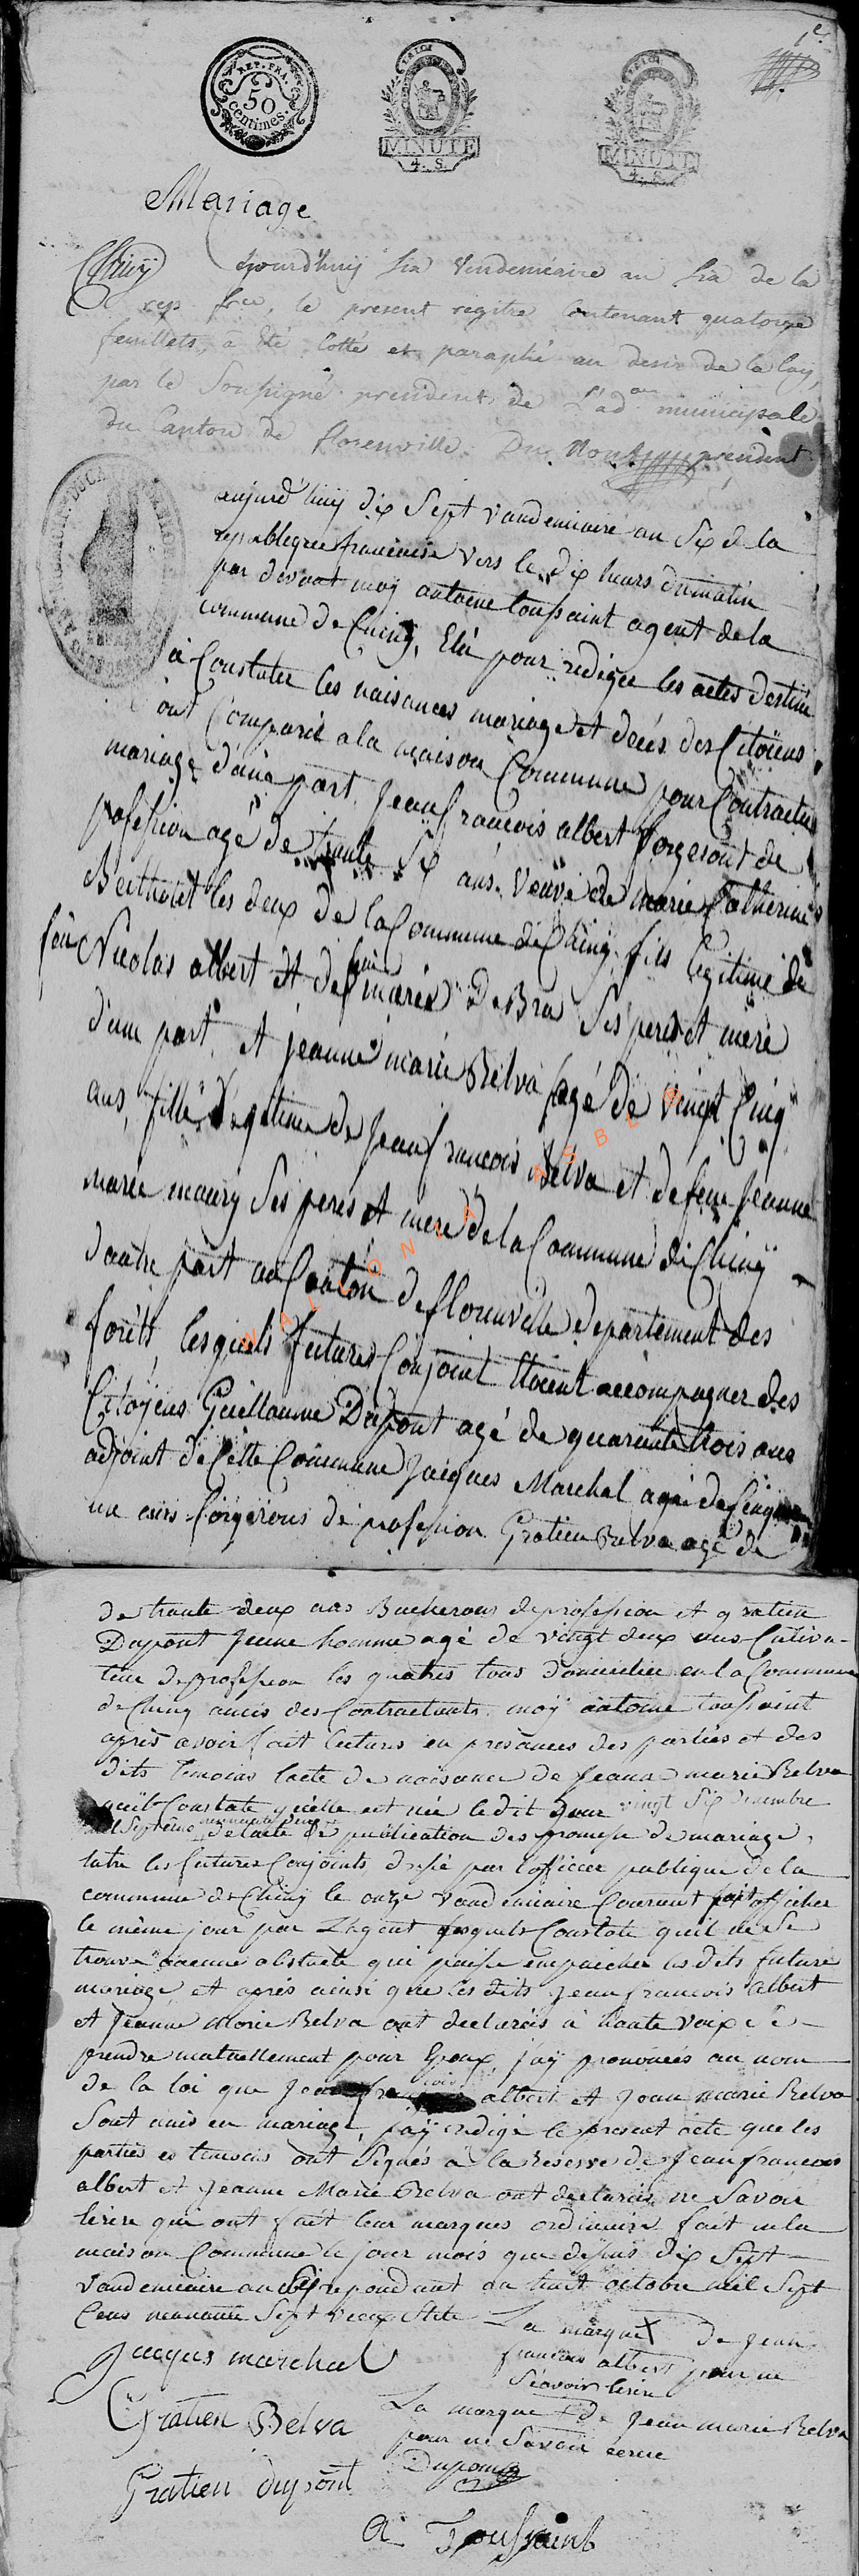 1e
REP. FRA.
50
centimes.
LA LOI
MINUTE
4. S.
LA LOI
MINUTE
4. S.
Mariage
Chiny jourd'huy six Vendemiaire an six de la
rep. frce, le present registre contenant quatorze
feuillets, a été cotté et paraphé au desir de la loy,
par le soussigné president de l'adon municipale
du Canton de florenville. president
aujourd'huy dix Sept vandemiaire an Six de la
republeque francoise vers le dix heurs du matin
par devant moy antoine toussaint agent de la
commune de Chiny, Elû pour rediger les actes destiné
à Constater les naisances mariage et decés des Citoiens
ont Comparû a la maison Commune pour Contracter
mariage d'une part Jean francois albert forgeront de
profession agé de trante Six ans veuve de marie Catherine
Bertholet les deux de la Commune de Chiny fils legitime de
feu Nicolas albert et de feue marie DeBra Ses peres et mere
d'une part, et jeanne marie Belva agé de vingt Cinq
ans, fille Legitime de Jean francois Belva et de feue Jeanne
marie maury Ses peres et mere de la Commune de Chiny
dautre part au Canton de florenville departement des
forêts, lesquels futures Conjoint Etoient accompagner des
Citoyens Guillaume Dupont agé de quarente trois ans
adjoint de Cette Commune Jacques Marchal agé de Cinquante
un ans forgerons de profession Gratien Belva agé de
de trante deux ans Bucherons de profession et gratien
Dupont Jeune homme agé de vingt deux ans Cultiva-
teur de profession les quatres tous domicilier en la Commune
de Chiny amis des Contractants. moy antoine toussaint
après avoir fait lectures en presances des parties et des
dits Temoins lacte de naisance de Jeanne marie Belva
quil Constate qu'elle est née le dit Jour vingt Six decembre
mil Sept cens de lacte de publication des promesse de mariage
entre les futures Conjoints dressé par l'officier publique de la
commune de Chiny le onze vandemiaire Courant fait afficher
le même jour par L'agent lesquels Constate quil ne Se
trouve aucune obstacle qui puisse empaicher les dits future
mariage, et après ainsi que les dits Jean francois albert
et Jeanne Marie Belva ont declarés à haute voix Se
prendre matuellement pour Epoux, j'ay prononcés au nom
de la loi que Jean francois albert et Jean marie Belva
Sont unis en mariage, j'ay redigé le present acte que les
parties et temoins ont Signés a la Reserve de Jean francois
albert et Jeanne Marie Belva ont declarés ne Savoir
Ecrire qui ont fait leur marques ordinaire fait en la
maison Commune le jour mois que dessus dix Sept
vandemiaire an Six repondant au huit octobre mil Sept
Cens nonante Sept vieux Stile La marque X de Jean
francois albert pour ne
Sçavoir Ecrire
Jacques marchal
La marque + de Jean marie Belva
pour ne Savoir ecrire
Gratien Belva
Dupont
Gratien dupont
A Toussaint
WALLONIA ASBL ®